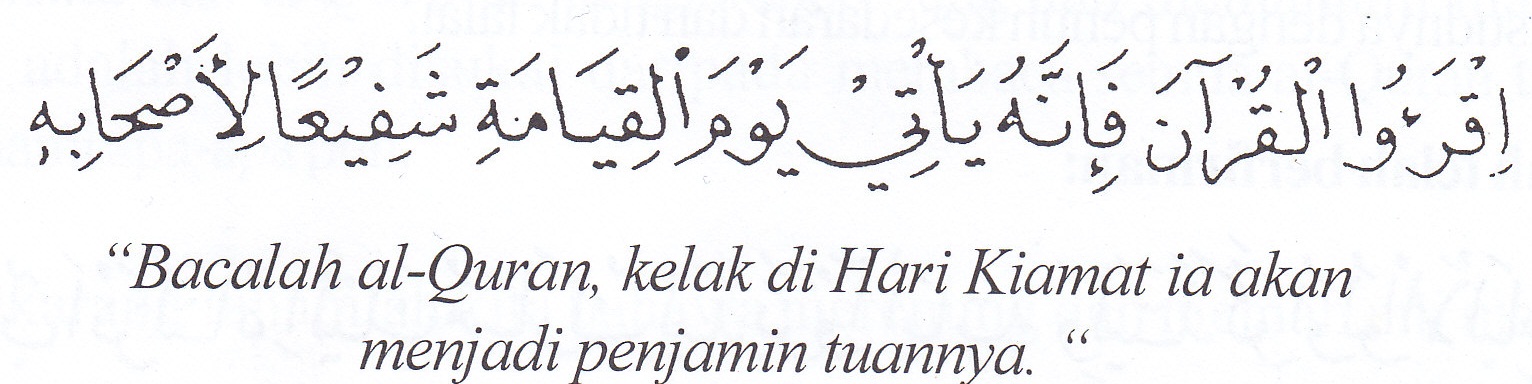 اِقْرَءُوا الْقُرْآنَ فَإِنَّهُ يَأْتِيْ يَوْمَ الْقِيَامَةِ شَفِيْعًا لِأَصْحَابِهِ
“Bacalah al-Quran, kelak di Hari Kiamat ia akan
menjadi penjamin tuannya. “